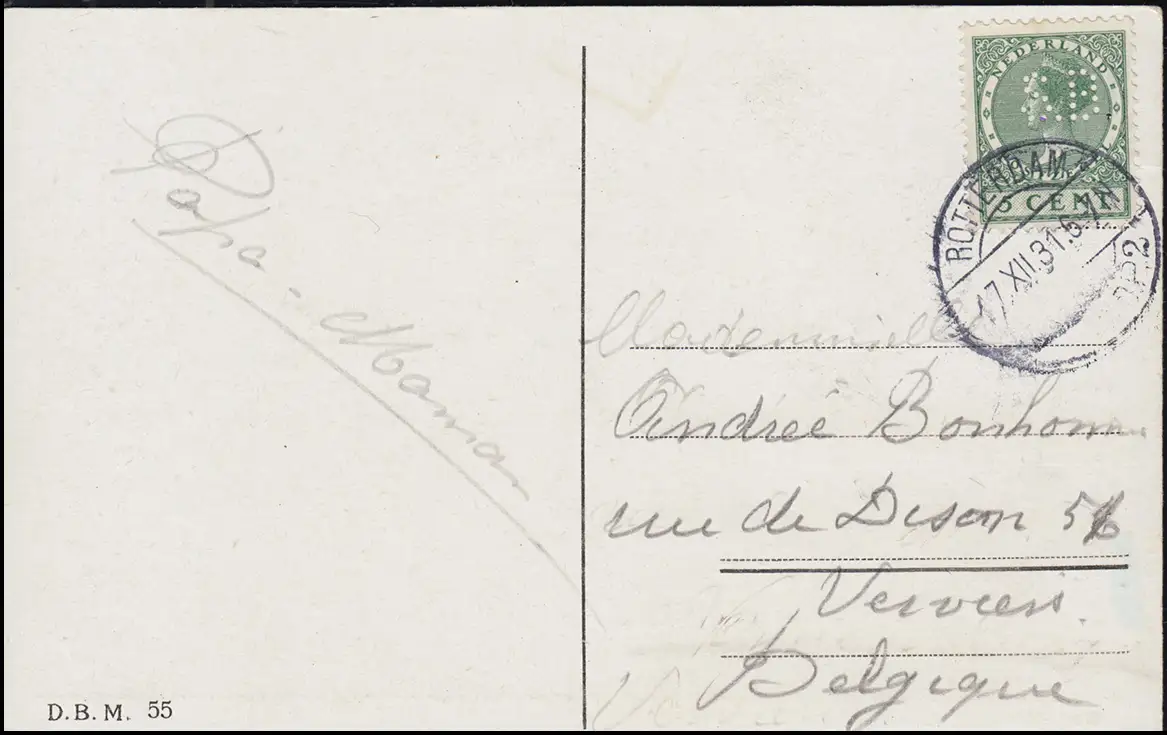 Papa-Maman
D.B.M. 55
NEDERLAND
5 CENT
ROTTERDAM
17.XII.31.5-7N
Mademoiselle
Andrée Bonhomme
rue de Dison 56
Verviers
Belgique